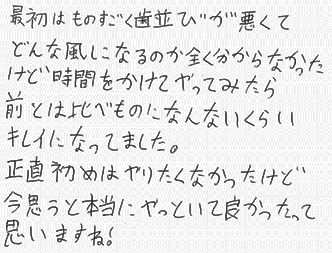 最初はものすごく歯並びが悪くて
どんな風になるのか全く分からなかった
けど時間をかけてやってみたら
前とは比べものになんないくらい
キレイになってました。
正直初めはやりたくなかったけど
今思うと本当にやっといて良かったって
思いますね!